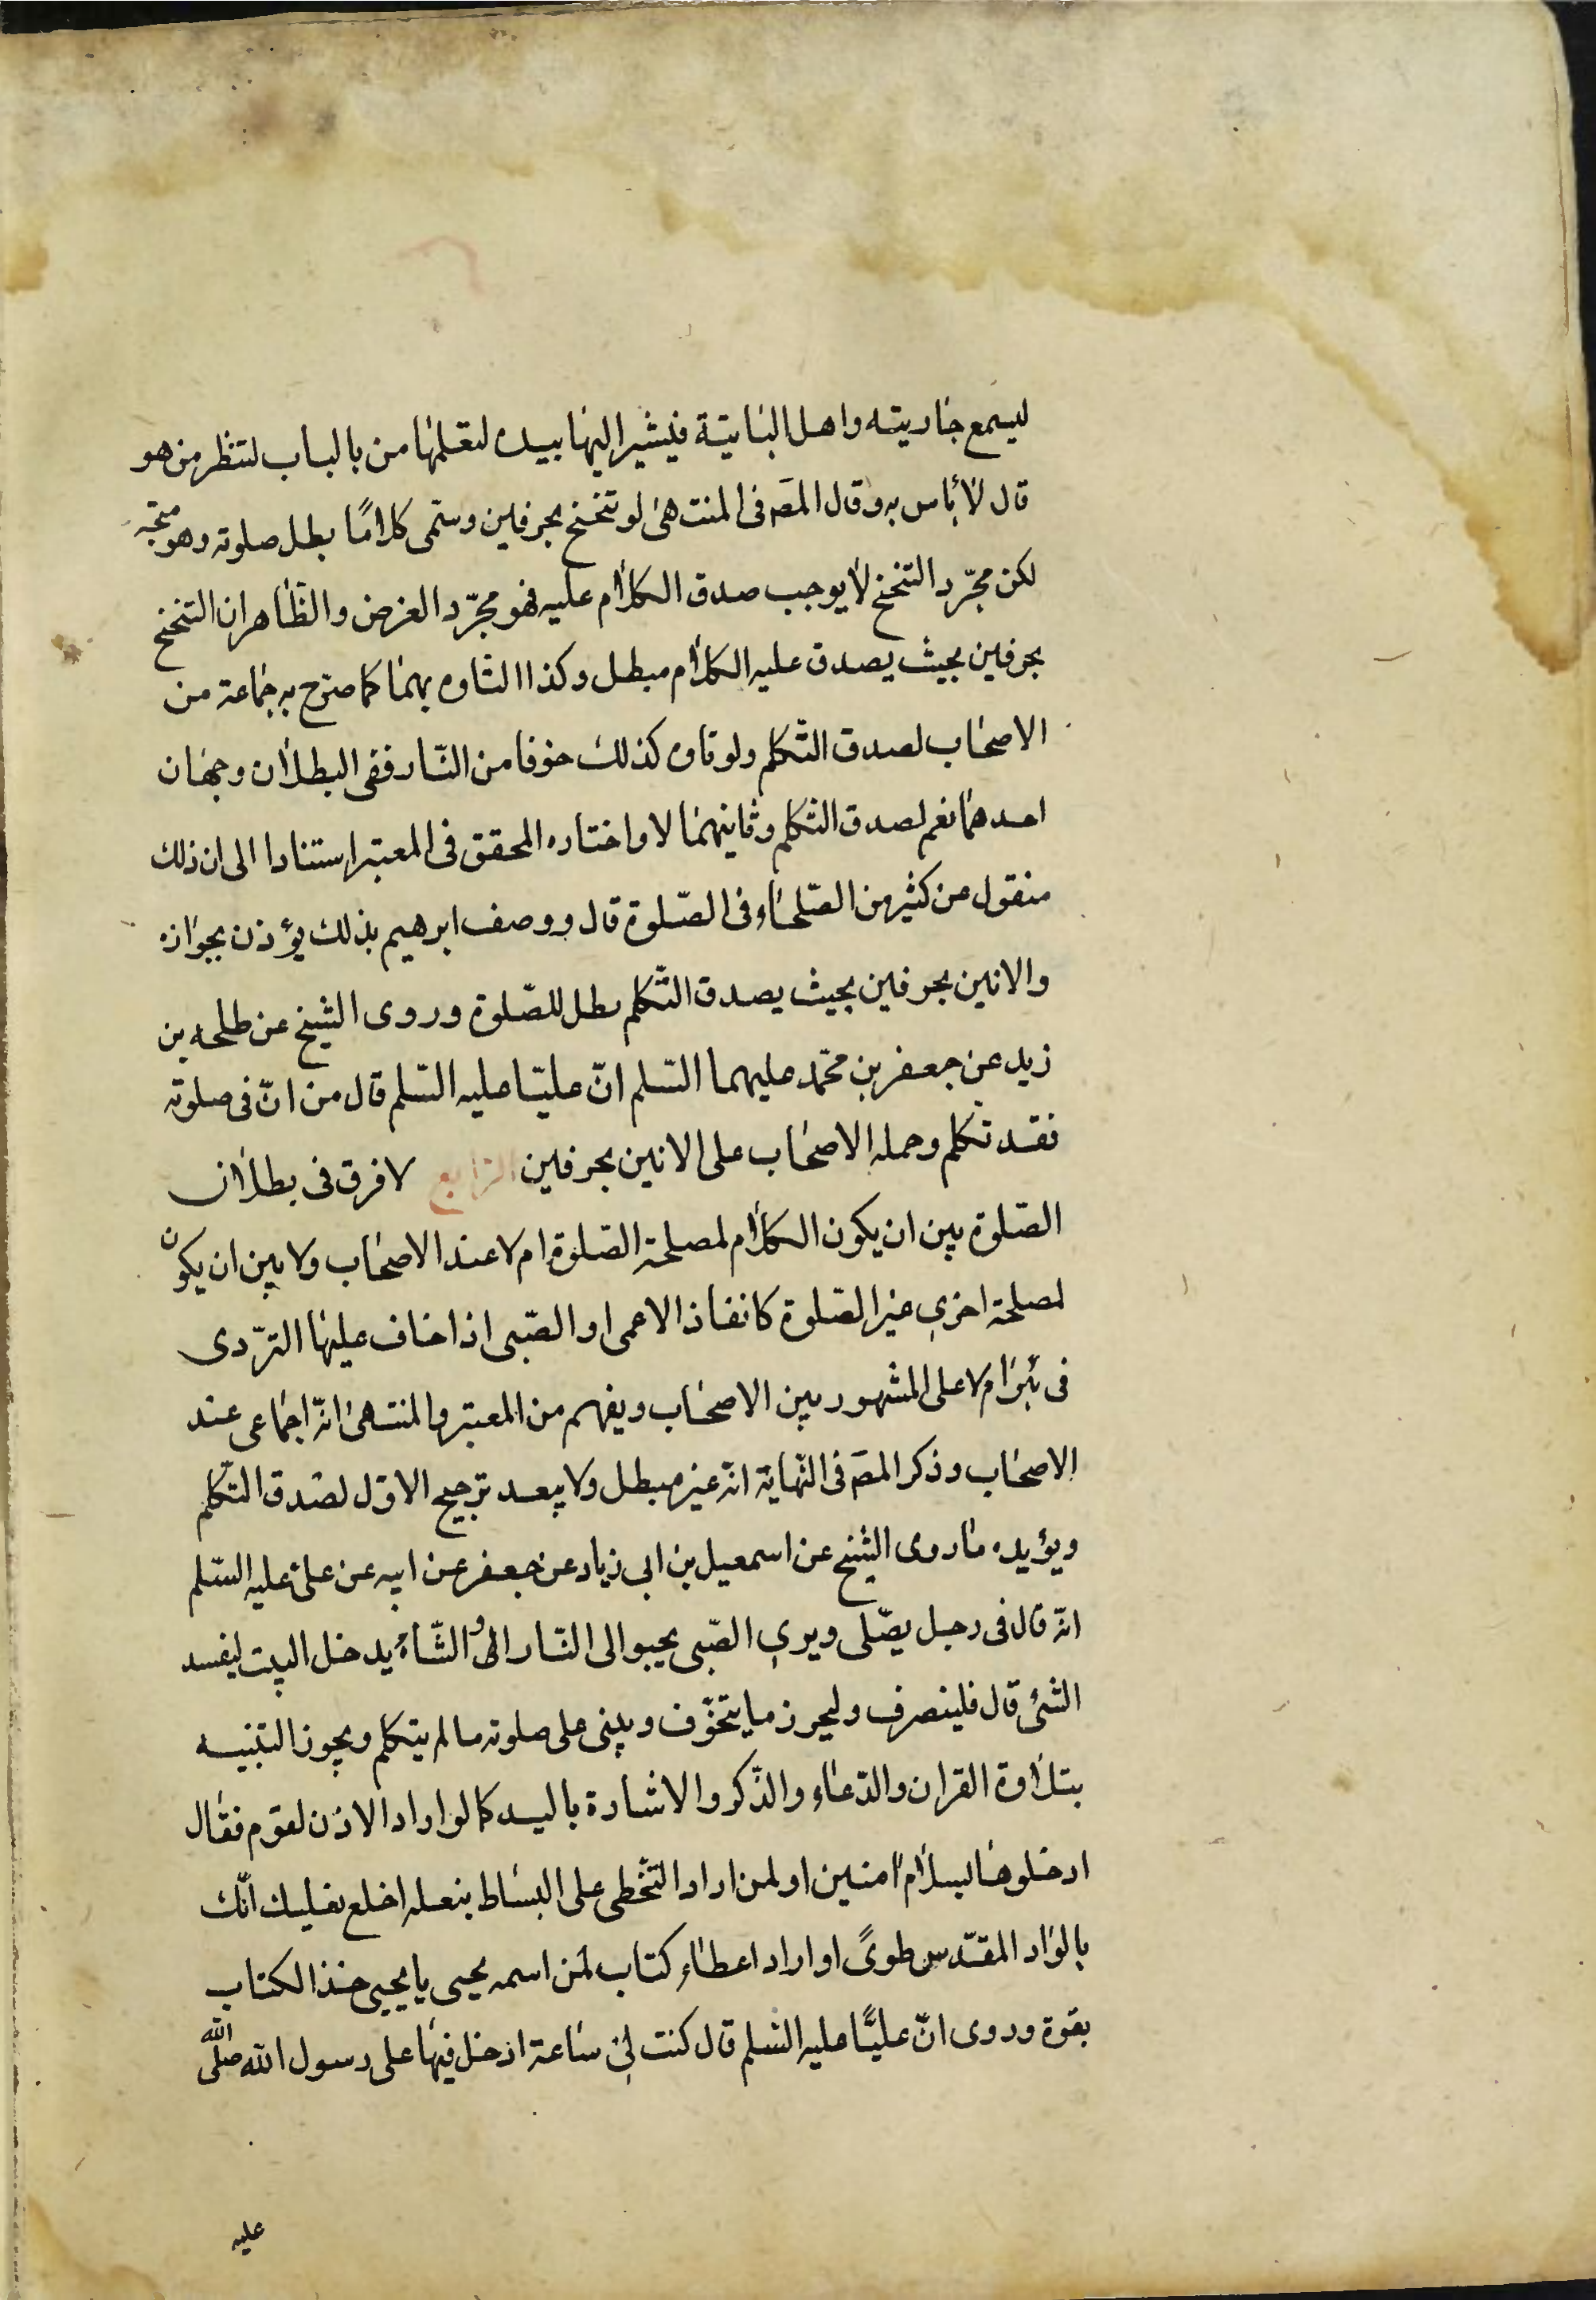 ليسمع جاريته واهل البايتة فيشير اليها بيده لتعلمها من بالباب لتنظر من هو
قال لا بأس به وقال المصَ فى المنتهى لو تنحنح بحرفين وسمّى كلامًا بطل صلوته وهو متجه
لكن مجرّد التنحنح لا يوجب صدق الكلام عليه فهو مجرّد الفرض والظاهر ان التنحنح
بحرفين بحيث يصدق عليه الكلام مبطل وكذا التاوه بهما كما صرّح به جماعة من
الاصحاب لصدق التكلم ولو تاوه كذلك خوفا من النّار ففى البطلان وجهان
احدهما نعم لصدق التكلم وثانيهما لا واختاره المحقق فى المعتبر استنادا الى ان ذلك
منقول عن كثير من الصّلحاء فى الصّلوة قال ووصف ابرهيم بذلك يؤذن بجوازه
والانين بحرفين بحيث يصدق التّكلم مبطل للصّلوة وروى الشيخ عن طلحه بن
زيد عن جعفر بن محمّد عليهما السّلم انّ عليّا عليه السّلم قال من انّ فى صلوته
فقد تكلم وحمله الاصحاب على الانين بحرفين الرّابع لا فرق فى بطلان
الصّلوة بين ان يكون الكلام لمصلحة الصّلوة ام لا عند الاصحاب ولا بين ان يكون
لمصلحة اخرى غير الصّلوة كانقاذ الاعمى او الصّبى اذا خاف عليها التردّى
فى بئر ام لا على المشهور بين الاصحاب ويفهم من المعتبر والمنتهى انّه اجماعى عند
الاصحاب وذكر المصَ فى النّهاية انّه غير مبطل ولا يبعد ترجيح الاوّل لصدق التّكلم
ويؤيده ما روى الشيخ عن اسمعيل بن ابى زياد عن جعفر عن ابيه عن على عليه السّلم
انّه قال فى رجل يصلّى ويرى الصّبى يحبو الى النّار او الشّاة يدخل البيت ليفسد
الشئ قال فلينصرف وليحرز ما يتخوّف ويبنى على صلوته ما لم يتكلم ويجوز التنبيه
بتلاوة القران والدّعاء والذّكر والاشارة باليد كما لو اراد الاذن لقوم فقال
ادخلوها بسلام امنين او لمن اراد التّخطى على البساط بنعله اخلع نعليك انّك
بالواد المقدّس طوىً او اراد اعطاء كتاب لمن اسمه يحيى يا يحيى خذ الكتاب
بقوة وروى انّ عليًّا عليه السّلم قال كنت لى ساعة ادخل فيها على رسول الله صلّى الله
عليه